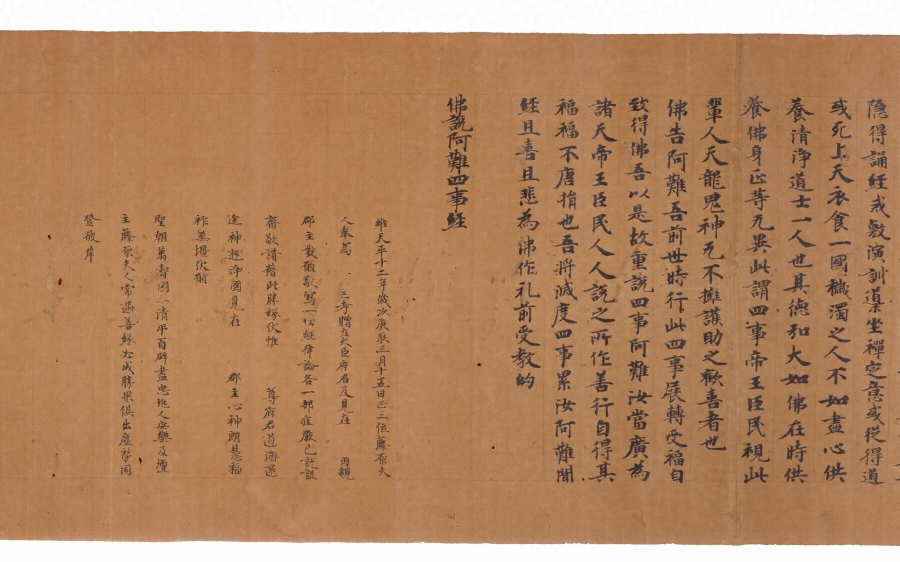 隱得誦經或敷演訓導坐禪定意或從得道
或死上天衣食一國穢濁之人不如盡心供
養清淨道士一人也其德弘大如佛在時供
養佛身正等无異此謂四事帝王臣民視此
輩人天龍鬼神无不擁護助之歡喜者也
佛告阿難吾前世時行此四事展轉受福自
致得佛吾以是故重說四事阿難汝當廣為
諸天帝王臣民人人說之所作善行自得其
福福不唐捐也吾將滅度四事累汝阿難聞
經且喜且悲為佛作礼前受教約
佛說阿難四事経
維天平十二年歲次庚辰三月十五日正三位藤原夫
人奉為 亡考贈左大臣府君及見在 内親
郡主發願敬寫一切経律論各一部莊嚴已訖設
齋敬讚藉此勝緣伏惟 尊府君道濟迷
途神遊淨國見在 郡主心神朗慧福
祚無疆伏願
聖朝萬壽國土清平百辟盡忠兆人安樂及檀
主藤原夫人常遇善緣必成勝果俱出塵勞同
登彼岸